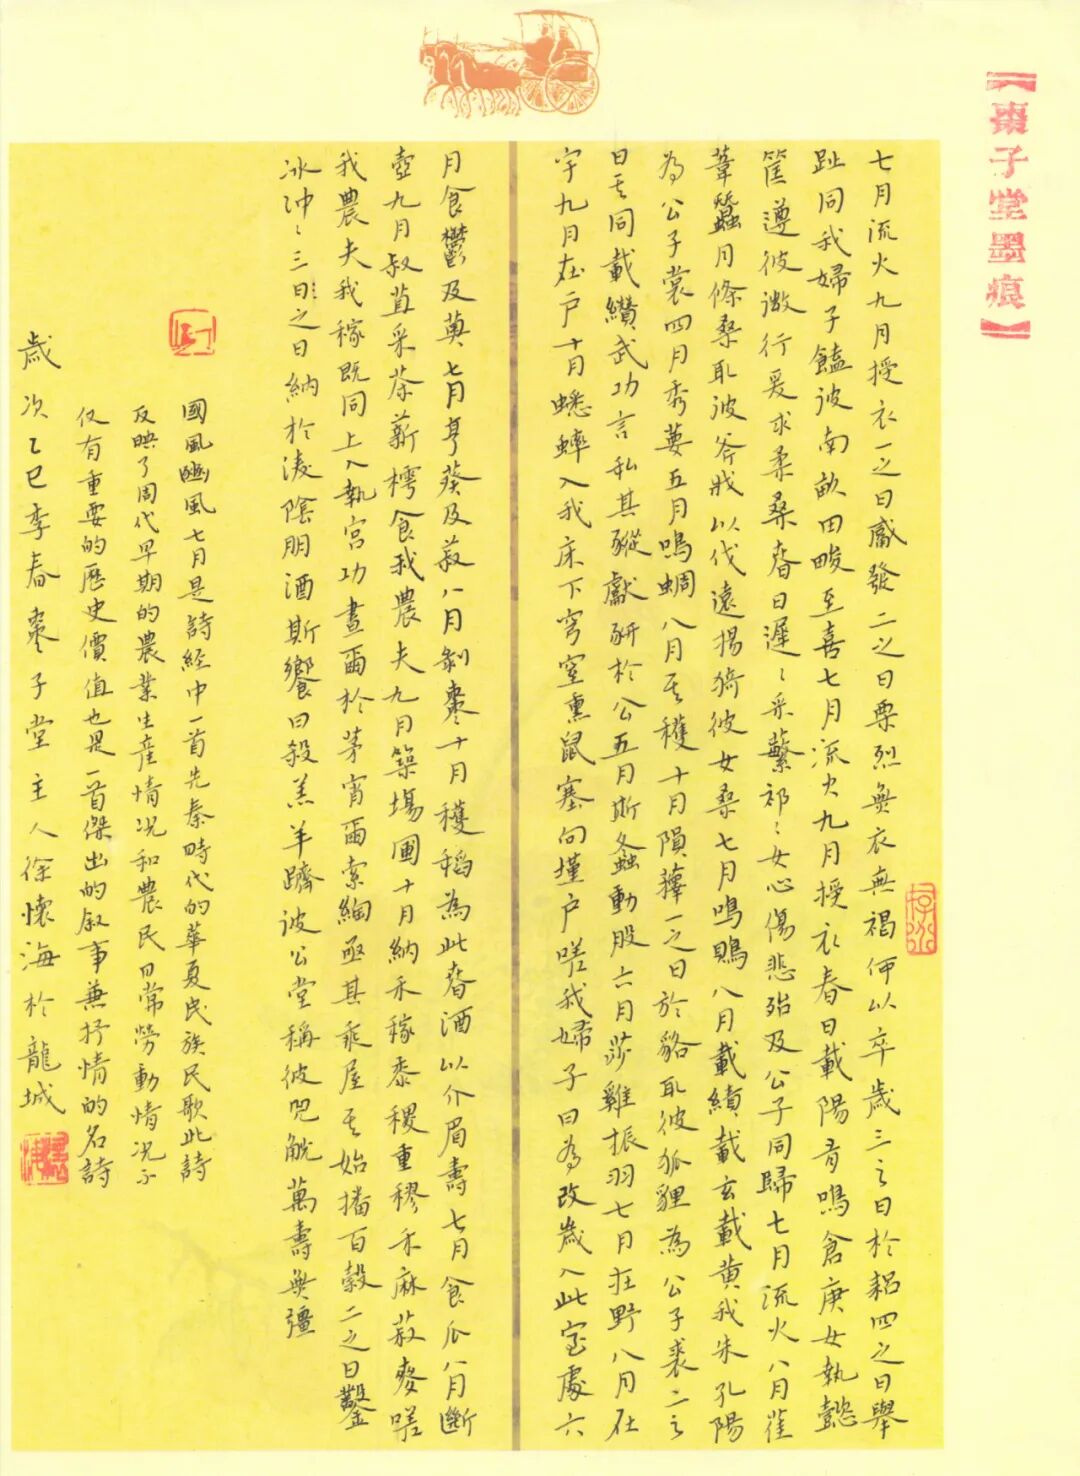 【棗子堂墨痕】
七月流火九月授衣一之日觱發二之日栗烈無衣無褐何以卒歲三之日於耜四之日舉
趾同我婦子饁彼南畝田畯至喜七月流火九月授衣春日載陽有鳴倉庚女執懿
筐遵彼微行爰求柔桑春日遲〻采蘩祁〻女心傷悲殆及公子同歸七月流火八月萑
葦蠶月條桑取彼斧斨以伐遠揚猗彼女桑七月鳴鵙八月載績載玄載黄我朱孔陽
為公子裳四月秀葽五月鳴蜩八月其穫十月隕蘀一之日於貉取彼狐貍為公子裘二之
日其同載纘武功言私其豵獻豜於公五月斯螽動股六月莎雞振羽七月在野八月在
宇九月在户十月蟋蟀入我床下穹窒熏鼠塞向墐户嗟我婦子曰為改歲入此室處六
月食鬱及薁七月亨葵及菽八月剝棗十月穫稻為此春酒以介眉壽七月食瓜八月斷
壺九月叔苴采荼薪樗食我農夫九月築場圃十月納禾稼黍稷重穋禾麻菽麥嗟
我農夫我稼既同上入執宫功晝爾於茅宵爾索綯亟其乘屋其始播百穀二之日鑿
冰沖〻三日之日納於淩陰朋酒斯饗曰殺羔羊躋彼公堂稱彼兕觥萬壽無疆
國風豳風七月是詩經中一首先秦時代的華夏民族民歌此詩
反映了周代早期的農業生産情况和農民日常勞動情况不
仅有重要的歷史價值也是一首傑出的叙事兼抒情的名詩
歲次乙巳季春棗子堂主人徐懷海於龍城